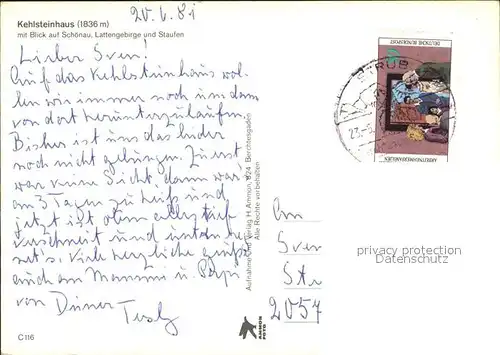 20.6.81
Kehlsteinhaus (1836 m)
mit Blick auf Schönau, Lattengebirge und Staufen
Lieber Sven!
Auf das Kehlsteinhaus wol-
len wir immer noch um dann
von dort herunterzulaufen
Bisher ist uns das leider
noch nicht gelungen. Zuerst
war keine Sicht, dann war's
an 3 Tagen zu heiß und
jetzt ist oben alles tief
verschneit und unten reg-
net's. Viele herzliche Grüße
auch an Mammi u. Papi
von Deiner
C 116
Aufnahme und Verlag H. Ammon, 824 Berchtesgaden
Alle Rechte vorbehalten
AMMON
FOTO
DEUTSCHE BUNDESPOST
STRUB
An
Sven
Str
2057
privacy protection
Datenschutz